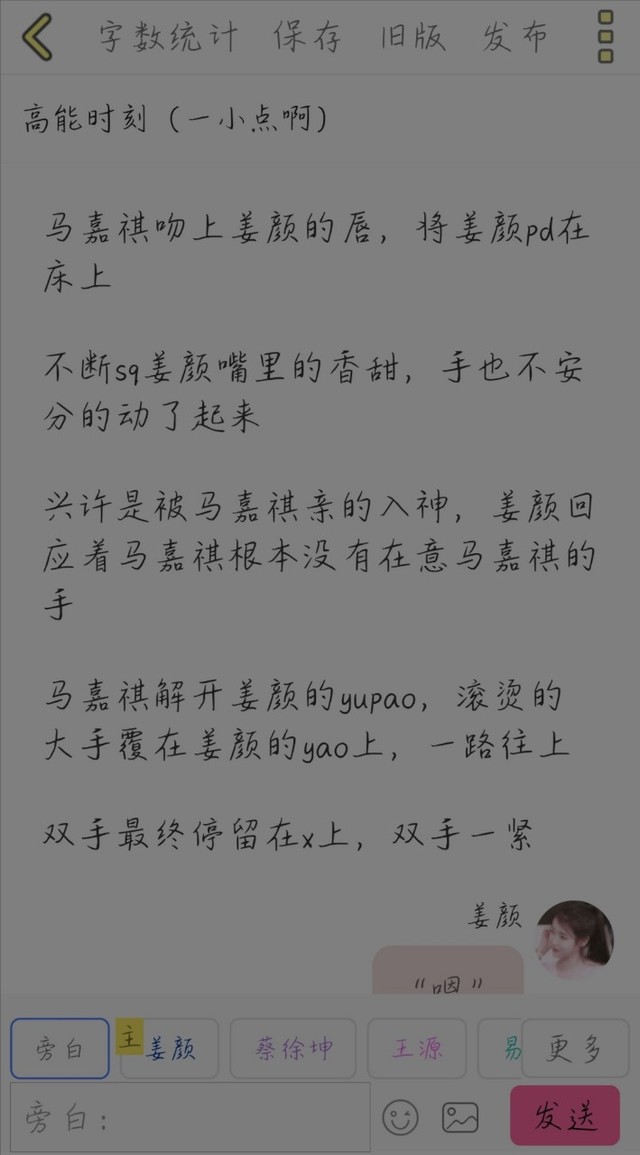 字数统计 保存 旧版 发布
高能时刻（一小点啊）
马嘉祺吻上姜颜的唇，将姜颜pd在
床上
不断sq姜颜嘴里的香甜，手也不安
分的动了起来
兴许是被马嘉祺亲的入神，姜颜回
应着马嘉祺根本没有在意马嘉祺的
手
马嘉祺解开姜颜的yupao，滚烫的
大手覆在姜颜的yao上，一路往上
双手最终停留在x上，双手一紧
姜颜
“咽”
旁白 主 姜颜 蔡徐坤 王源 易 更多
旁白：
发送